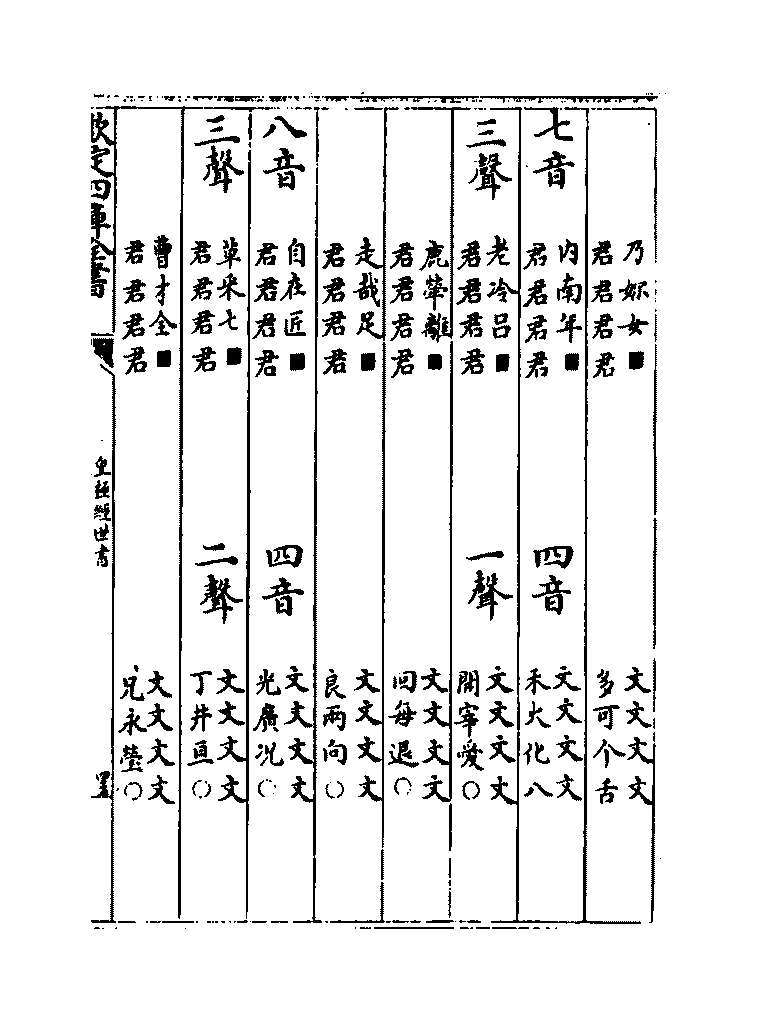 乃妳女■
君君君君
文文文文
多可个舌
七音
內南年■
君君君君
四音
文文文文
禾火化八
三聲
老冷呂■
君君君君
一聲
文文文文
開宰愛○
鹿犖離■
君君君君
文文文文
回每退○
走哉足■
君君君君
文文文文
良兩向○
八音
自在匠■
君君君君
四音
文文文文
光廣況○
三聲
草采七■
君君君君
二聲
文文文文
丁井亘○
曹才全■
君君君君
文文文文
兄永瑩○
欽定四庫全書
皇極經世書